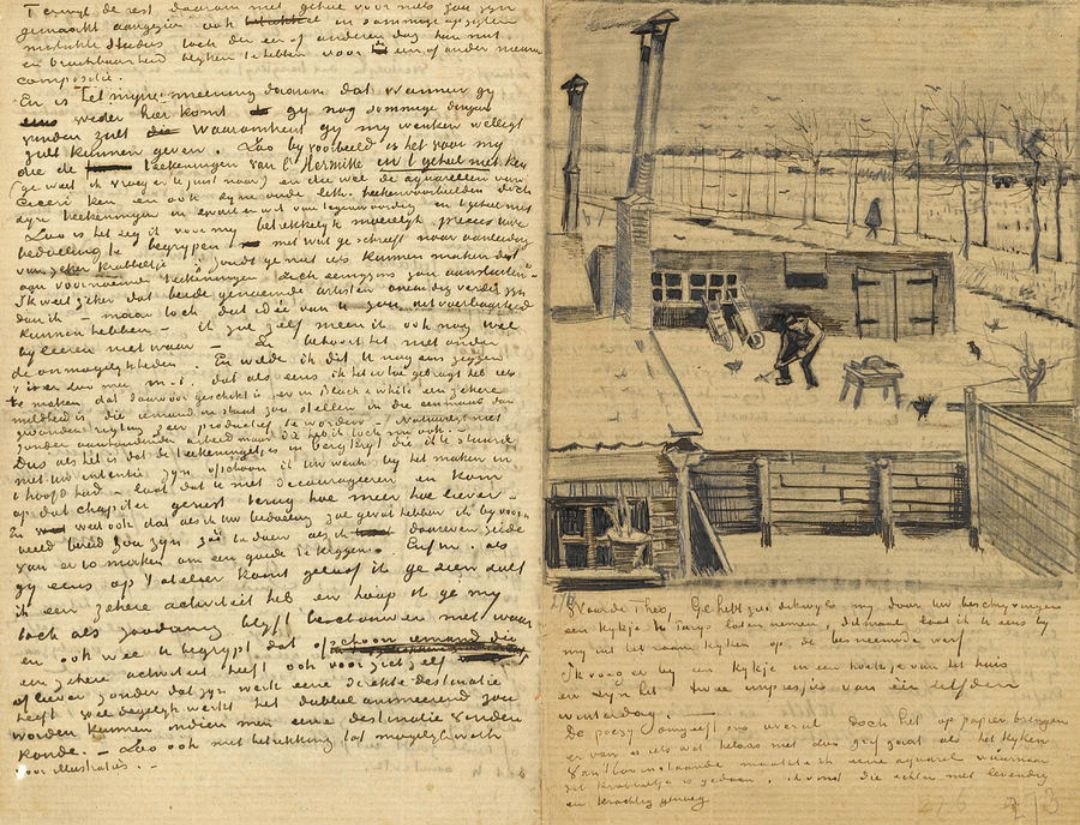 Terwijl de rest daarom niet geheel voor niets zou zijn
gemaakt aangezien ook in sommige opzigten
mislukte studies toch den een of anderen dag hun nut
en bruikbaarheid blijken te hebben voor een of ander nieuwe
compositie.
En is 't mijne meening daarom dat wanneer gij
eens weder hier komt gij nog sommige dingen
vinden zult waaromtrent gij mij wenken welligt
zult kunnen geven. Zoo bijvoorbeeld is het voor mij
die de teekeningen van l'Hermitte in 't geheel niet ken
(ge weet ik vroeg er U juist naar) en die wel de aquarellen van
Ciceri ken en ook zijne oude lith. teekenvoorbeelden doch
zijn teekeningen in zwart en wit van tegenwoordig in 't geheel niet
Zoo is het zeg ik voor mij betrekkelijk moeielijk precies uwe
bedoeling te begrijpen met wat ge schreeft naar aanleiding
van zeker krabbeltje "zoudt ge niet iets kunnen maken dat
aan voornoemde teekeningen zich eenigzins zou aansluiten"
Ik weet zeker dat beide genoemde artisten oneindig verder zijn
dan ik – maar toch dat idée van U zou
kunnen hebben – ik zal zelf meen ik ook nog wel
bijleeren niet waar – En behoort het niet onder
de onmogelijkheden. En wilde ik dit U nog eens zeggen
dat als eens ik het er toe gebragt heb iets
te maken dat daarvoor geschikt is, er in Black & white een zekere
mildheid is die iemand in staat zou stellen in die eenmaal dan
gevonden rigting zeer productief te worden – Natuurlijk niet
zonder aanhoudenden arbeid maar die heb ik toch nu ook. –
Dus als het is dat de teekeningetjes in bergtype die ik U stuurde
niet uw intentie zijn ofschoon ik uw wenk bij het maken in
't hoofd had – laat dat U niet decourageren en kom
op dat chapiter gerust terug hoe meer hoe liever –
En weet ook dat als ik uw bedoeling zou gevat hebben ik bijvoor-
beeld bereid zou zijn daar een zeide
van er 10 maken om een goede te krijgen. Enfin. als
gij eens op 't atelier komt geloof ik ge zien zult
ik een zekere activiteit heb en hoop ik ge mij
toch als zoodanig blijft beschouwen niet waar
en ook wel U begrijpt dat ofschoon iemand die
een zekere activiteit heeft ook voor zich zelf
of liever zonder dat zijn werk eene directe destinatie
heeft wel degelijk werkt het dubbel animeerend zou
worden kunnen indien men eene destinatie vinden
konde. – Zoo ook met betrekking tot mogelijk werk
voor illustratie. –
Waarde Theo, Ge hebt zoo dikwijls mij door uw beschrijvingen
een kijkje in Parijs laten nemen, ditmaal laat ik U eens bij
mij uit het raam kijken op de besneeuwde werf
Ik voeg er bij een kijkje in een hoekje van het huis
en zijn het twee impressies van één zelfden
winterdag. –
De poezy omgeeft ons overal doch het op papier brengen
er van is iets wat helaas niet zoo grif gaat als het kijken
Van bovenstaande maakte ik eene aquarel waarnaar
dit krabbeltje is gedaan, ik vond die echter niet levendig
en krachtig genoeg
276 273